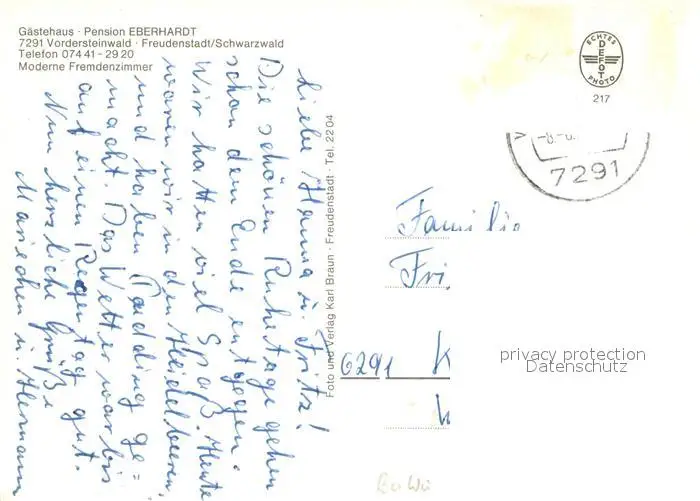 Gästehaus · Pension EBERHARDT
7291 Vordersteinwald · Freudenstadt/Schwarzwald
Telefon 07441 - 2920
Moderne Fremdenzimmer
Liebe Hanna u. Fritz!
Die schönen Ruhetage gehen
schon dem Ende entgegen.
Wir hatten viel Spaß. Heute
waren wir in den Heidelbeeren,
und haben Pudding ge=
macht. Das Wetter war bis
auf einen Regentag gut.
Nun herzliche Grüße
Mariechen u. Hermann
Foto und Verlag Karl Braun · Freudenstadt · Tel. 2204
ECHTES
DEFOT
PHOTO
217
7291
Familie
Fri
6291 K
privacy protection
Datenschutz